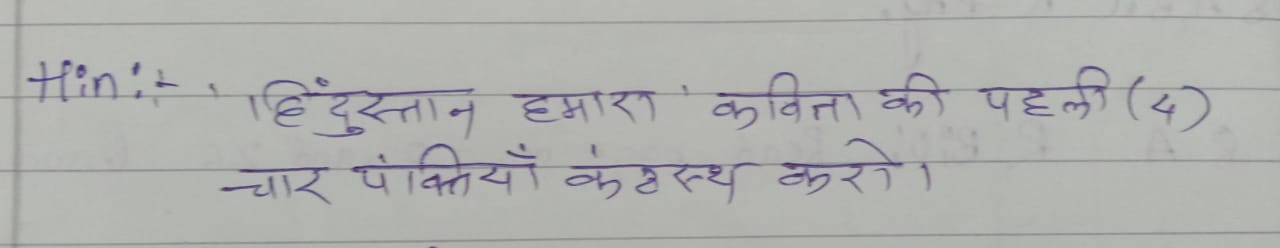 Hin:- 'हिंदुस्तान हमारा' कविता की पहली (4)
चार पंक्तियाँ कंठस्थ करो।